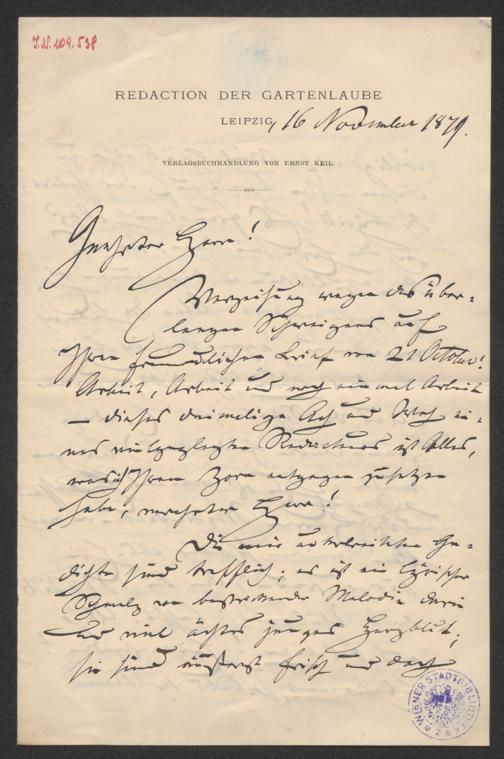 I.N. 109.538
REDACTION DER GARTENLAUBE
LEIPZIG, 16 November 1879.
VERLAGSBUCHHANDLUNG VON ERNST KEIL.
Geehrter Herr!
Verzeihung wegen des über-
langen Schweigens auf
Ihren freundlichen Brief vom 21 October!
Arbeit, Arbeit und noch einmal Arbeit
— dieses dreimalige Ach und Weh ei-
nes vielgeplagten Redacteurs ist Alles,
was ich Ihrem Zorn entgegen zu setzen
habe, verehrter Herr!
Die mir unterbreiteten Ge-
dichte sind trefflich; es ist ein lyrischer
Schmelz von bestrickender Melodie darin
und viel ächtes junges Herzblut;
sie sind äußerst frisch und doch
WIENER STADTBIBLIOTHEK